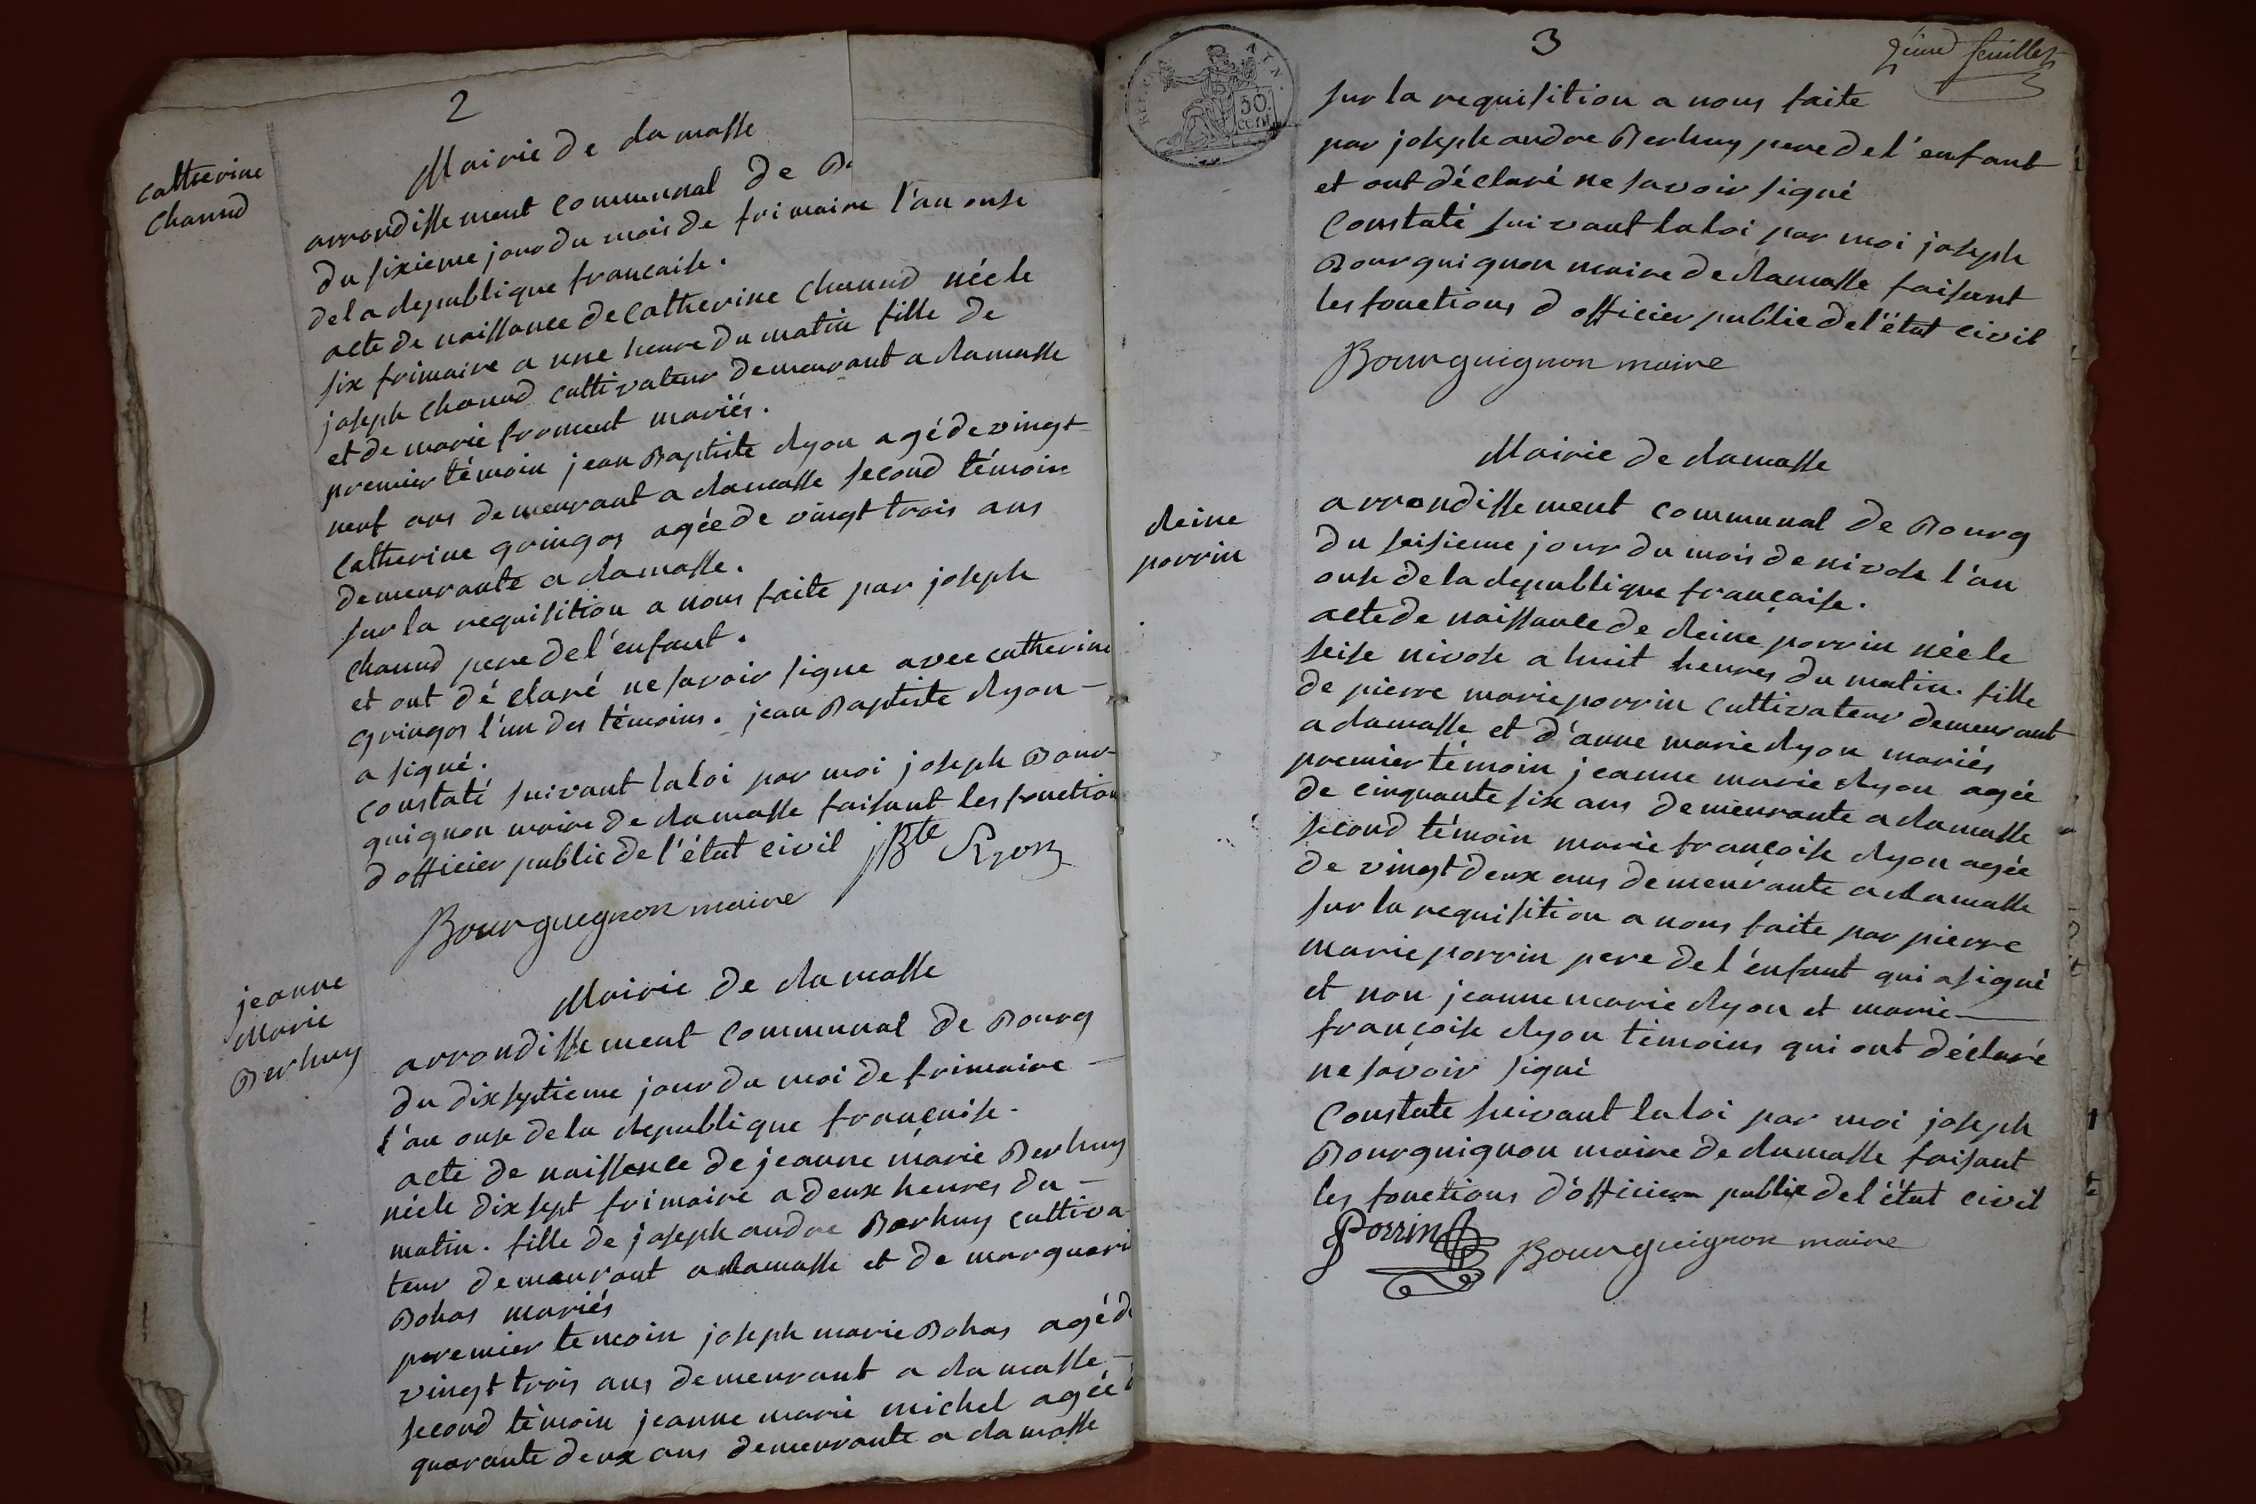 2
Mairie de Ramasse
catherine
chanud
arrondissement communal de B
du sixieme jour du mois de frimaire l'an onse
de la Republique francaise.
acte de naissance de catherine chanud née le
six frimaire a une heure du matin fille de
joseph chanud cultivateur demeurant a Ramasse
et de marie froment mariés.
premier témoin jean Baptiste Ryon agé de vingt
neuf ans demeurant a Ramasse second témoin
catherine gringos agée de vingt trois ans
demeurante a Ramasse.
sur la requisition a nous faite par joseph
chanud pere de l'enfant.
et ont dé claré ne savoir signe avec catherine
gringos l'un des témoins. jean Baptiste Ryon
a signé.
constaté suivant la loi par moi joseph Bour-
guignon maire de Ramasse faisant les fonction
d officier public de l'état civil jBte Ryon
Bourguignon maire
jeanne
Marie
Berhuy
Mairie de Ramasse
arrondissement communal de Bourg
du dix septieme jour du moi de frimaire
l'an onse de la Republique française.
acte de naissance de jeanne marie Berhuy
née le dix sept frimaire a deux heures du
matin. fille de joseph andre Berhuy cultiva
teur demeurant a Ramasse et de margueri
Bohas mariés
premier temoin joseph marie Bohas agé d
vingt trois ans demeurant a Ramasse
second témoin jeanne marie michel agée
quarante deux ans demeurante a Ramasse
3
2ieme feuillet
50.
cent.
sur la requisition a nous faite
par joseph andre Berhuy pere de l'enfant
et ont déclaré ne savoir signé
Constaté suivant la loi par moi joseph
Bourguignon maire de Ramasse faisant
les fonctions d officier public de l'état civil
Bourguignon maire
Mairie de Ramasse
Reine
porrin
arrondissement communal de Bourg
du seisieme jour du mois de nivose l'an
onse de la Republique française.
acte de naissance de Reine porrin née le
seise nivose a huit heures du matin. fille
de pierre marie porrin cultivateur demeurant
a Ramasse et d'anne marie Ryon mariés
premier témoin jeanne marie Ryon agée
de cinquante six ans demeurante a Ramasse
second témoin marie françoise Ryon agée
de vingt deux ans demeurante a Ramasse
sur la requisition a nous faite par pierre
marie porrin pere de l'enfant qui a signé
et non jeanne marie Ryon et marie
françoise Ryon témoins qui ont déclaré
ne savoir signé
Constate suivant la loi par moi joseph
Bourguignon maire de Ramasse faisant
les fonctions d'officier public de l'état civil
Porrin Bourguignon maire